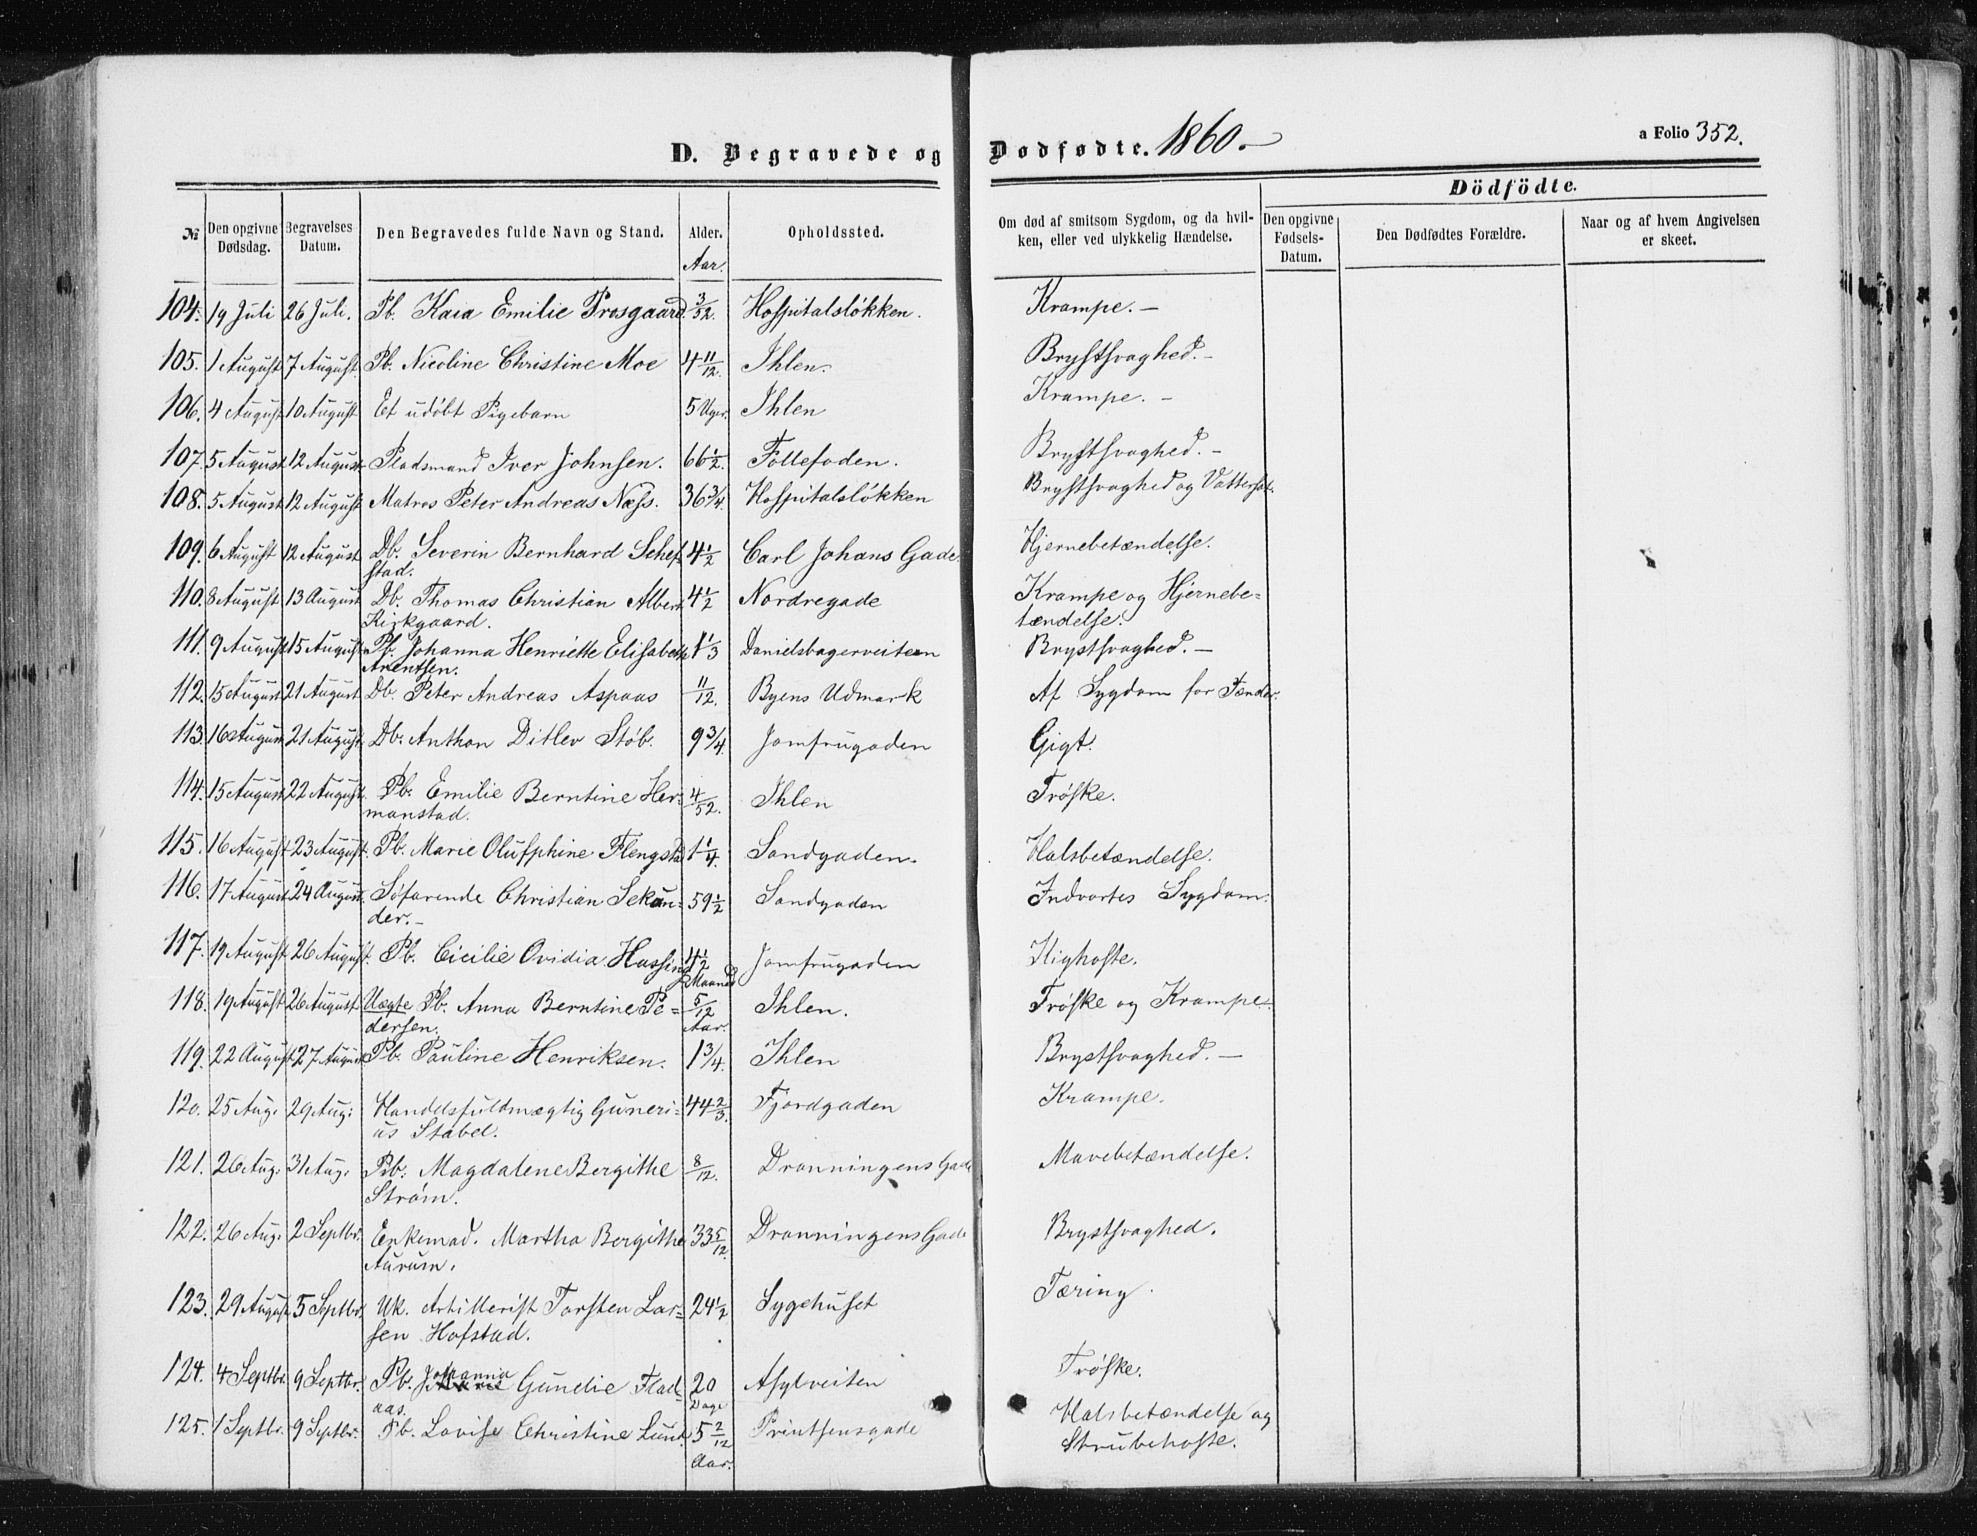 D. Begravede og Dodfødte. 1860.
a Folio 352.
Dödfödte.
№ Den opgivne Dødsdag. Begravelses Datum. Den Begravedes fulde Navn og Stand. Alder. Opholdssted. Om død af smitsom Sygdom, og da hvil-
ken, eller ved ulykkelig Hændelse. Den opgivne Fødsels-Datum. Den Dødfødtes Forældre. Naar og af hvem Angivelsen er skeet.
Aar.
104. 19 Juli 26 Juli. Pb. Kaia Emilie Prosgaard. 3/52. Hospitalsløkken. Krampe. –
105. 1 August 7 August. Pb. Nicoline Christine Moe 4 11/12. Ihlen. Brystsvaghed. –
106. 4 August 10 August Et udöbt Pigebarn 5 Uger. Ihlen Krampe. –
107. 5 August 12 August Pladsmand Iver Johnsen. 66 1/2. Follefoden. Brystsvaghed. –
108. 5 August 12 August Matros Peter Andreas Næss. 36 3/4. Hospitalsløkken Brystsvaghed og Vattersot.
109. 6 August 12 August Db. Severin Bernhard Schef-
stad. 4 1/2 Carl Johans Gade. Hjernebetændelse.
110. 8 August 13 August Db. Thomas Christian Albert
Kirkgaard. 4 1/2 Nordregade Krampe og Hjernebe=
tændelse.
111. 9 August 15 August Pb. Johanna Henriette Elisabeth
Arentsen. 1 1/3 Danielsbagerveiten Brystsvaghed. –
112. 15 August 21 August Db. Peter Andreas Aspaas 11/12. Byens Udmark Af Sygdom for Tænder.
113. 16 August 21 August Db. Anthon Ditlev Støb. 9 3/4. Jomfrugaden Gigt.
114. 15 August 22 August. Pb. Emilie Berntine Her=
manstad. 4/52. Ihlen Trøske.
115. 16 August 23 August. Pb. Marie Olufphine Flengstad 1 1/4. Sandgaden. Halsbetændelse.
116. 17 August 24 August. Søfarende Christian Sekun=
der. – 59 1/2 Sandgaden Indvortes Sygdom.
117. 19 August 26 August. Pb. Cicilie Ovidia Hassing 4 1/2
Maaned Jomfrugaden Kighoste.
118. 19 August 26 August Uægte Pb. Anna Berntine Pe=
dersen. 5/12
Aar. Ihlen. Trøske og Krampe.
119. 22 August 27 August Pb. Pauline Henriksen. 1 3/4. Ihlen Brystsvaghed. –
120. 25 Aug. 29 Aug: Handelsfuldmægtig Guneri-
us Stabel. 44 2/3. Fjordgaden Krampe.
121. 26 Aug: 31 Aug. Pb. Magdalene Bergithe
Strøm. 8/12. Dronningens Gade Mavebetændelse.
122. 26 Aug. 2 Septbr. Enkemad. Martha Bergithe
Aurum. 33 5/12. Dronningens Gade Brystsvaghed.
123. 29 August 5 Septbr. Uk. Artillerist Torsten Lar=
sen Hofstad. 24 1/2 Sygehuset Tæring.
124. 4 Septbr. 9 Septbr. Pb. Johanna Gunelie Flad-
aas. 20
Dage Asylveiten Trøske.
125. 1 Septbr. 9 Septbr. Pb. Lovise Christine Lund. 5 2/12
Aar. Printsensgade Halsbetændelse og
Strubehoste.